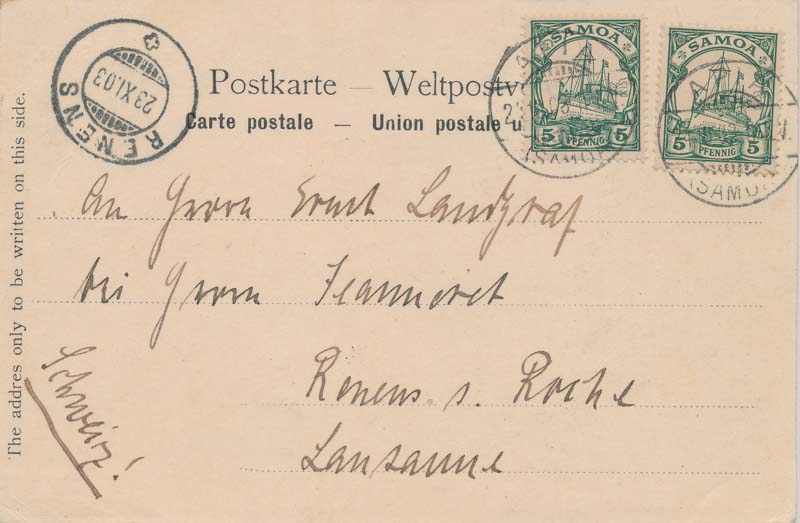 SAMOA
5 PFENNIG 5
SAMOA
5 PFENNIG 5
RENENS
23 XI.03
Postkarte — Weltpostv
Carte postale — Union postale u
(SAMOA
(SAMOA
An Herrn Ernst Landgraf
bei Herrn Jeanneret
Renens s. Roche
Lausanne
Schweiz!
The addres only to be written on this side.